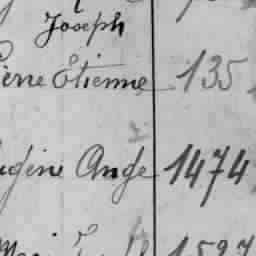 Joseph
ierre Etienne 135
ugène Ange 1474